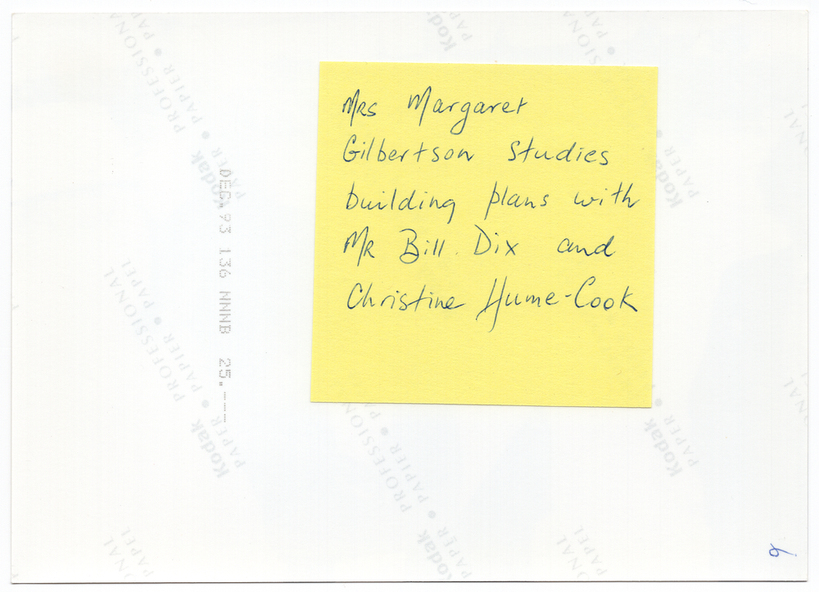 Mrs Margaret
Gilbertson Studies
building plans with
Mr Bill Dix and
Christine Hume-Cook
DEC.93 136 NNNB 25.---
Kodak
PROFESSIONAL
PAPER • PAPIER